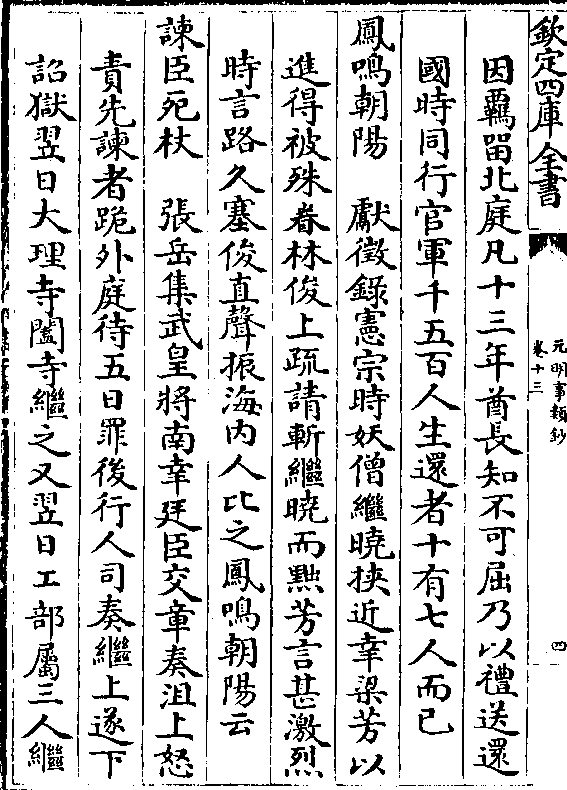 欽定四庫全書
元明事類鈔
卷十三
四
因羈留北庭凡十三年酋長知不可屈乃以禮送還
國時同行官軍千五百人生還者十有七人而已
鳳鳴朝陽　獻徵錄憲宗時妖僧繼曉挾近幸梁芳以
進得被殊眷林俊上疏請斬繼曉而黜芳言甚激烈
時言路久塞俊直聲振海内人比之鳳鳴朝陽云
諫臣死杖　張岳集武皇將南幸廷臣交章奏沮上怒
責先諫者跪外庭待五日罪後行人司奏繼上遂下
詔獄翌日大理寺闔寺繼之又翌日工部屬三人繼